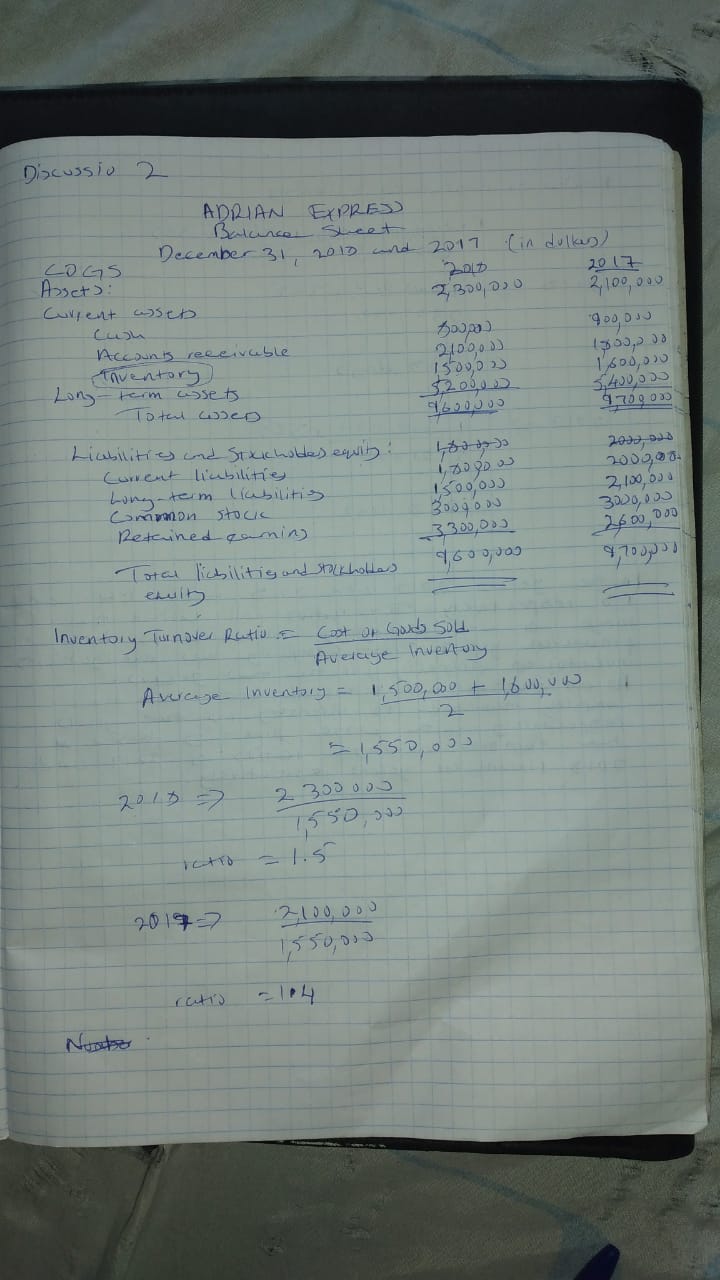 Discussio 2
ADRIAN EXPRESS
Balance Sheet
December 31, 2018 and 2017 (in dollars)
COGS 2018 2017
Assets: 2,300,000 2,100,000
Current assets
Cash 800,000 900,000
Accounts receivable 2100,000 1800,000
Inventory 1500,000 1,600,000
Long-term assets 5200,000 5,400,000
Total assets 9600,000 9700,000
Liabilities and Stockholders equity: 1,800,000 2000,000
Current liabilities 1,800,000 2000,000
Long-term liabilities 1500,000 2,100,000
Common stock 3000,000 3000,000
Retained earning 3300,000 2600,000
Total liabilities and stockholders 9,600,000 9,700,000
equity
Inventory Turnover Ratio = Cost of Goods Sold
Average Inventory
Average Inventory = 1,500,000 + 1,600,000
2
= 1,550,000
2018 => 2 300 000
1,550,000
ratio = 1.5
2017 => 2,100,000
1,550,000
ratio = 1.4